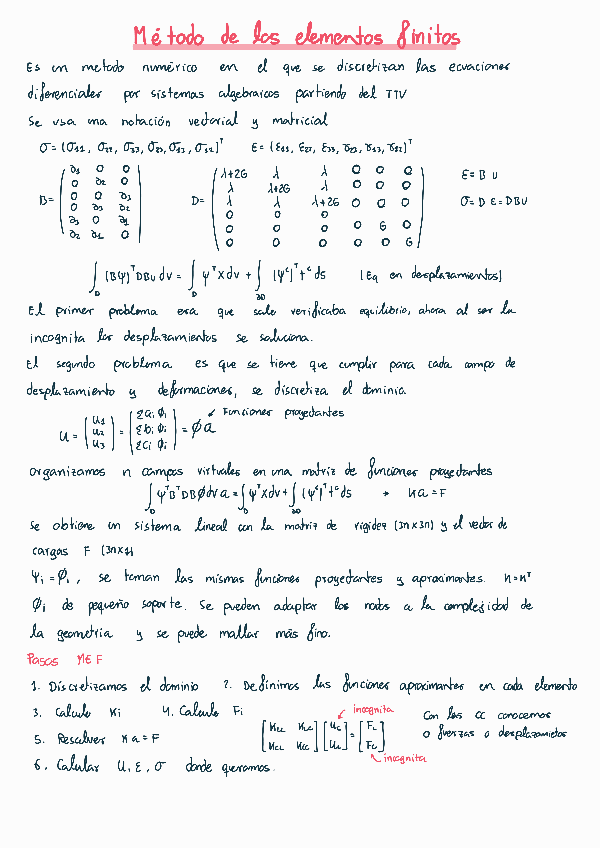 Método de los elementos finitos
Es un metodo numérico en el que se discretizan las ecuaciones
diferenciales por sistemas algebraicos partiendo del TTV
Se usa una notación vectorial y matricial
σ = (σ11, σ22, σ33, σ23, σ13, σ12)^T ε = (ε11, ε22, ε33, γ23, γ13, γ12)^T
B = (∂1 0 0 D = (λ+2G λ λ 0 0 0 ε = B u
0 ∂2 0 λ λ+2G λ
0 0 ∂3 λ λ λ+2G 0 0 0 σ = D ε = DBU
0 ∂3 ∂2 0 0 0
∂3 0 ∂1 0 0 0 0 G 0
∂2 ∂1 0) 0 0 0 0 0 G)
∫_D (Bψ)^T DBu dv = ∫_D ψ^T X dv + ∫_∂D (ψ^c)^T t^c ds (Eq en desplazamientos)
El primer problema era que solo verificaba equilibrio, ahora al ser la
incognita los desplazamientos se soluciona.
El segundo problema es que se tiene que cumplir para cada campo de
desplazamiento y deformaciones, se discretiza el dominio.
u = [u1 u2 u3] = [Σai φi Σbi φi Σci φi] = φ a ↙ Funciones proyectantes
organizamos n campos virtuales en una matriz de funciones proyectantes
∫_D ψ^T B^T D B φ dv a = ∫_D ψ^T X dv + ∫_∂D (ψ^c)^T t^c ds → K a = F
se obtiene un sistema lineal con la matriz de rigidez (3n×3n) y el vector de
cargas F (3n×1)
ψi = φi, se toman las mismas funciones proyectantes y aproximantes. K = K^T
φi de pequeño soporte. Se pueden adaptar los nodos a la complejidad de
la geometria y se puede mallar más fino.
Pasos MEF
1. Discretizamos el dominio 2. Definimos las funciones aproximantes en cada elemento
3. Calculo Ki 4. Calculo Fi incognita Con las CC conocemos
5. Resolver K a = F [KLL KLC KCL KCC] [UC UL] = [FL FC] o fuerzas o desplazamientos
incognita
6. Calular U, ε, σ donde queramos.